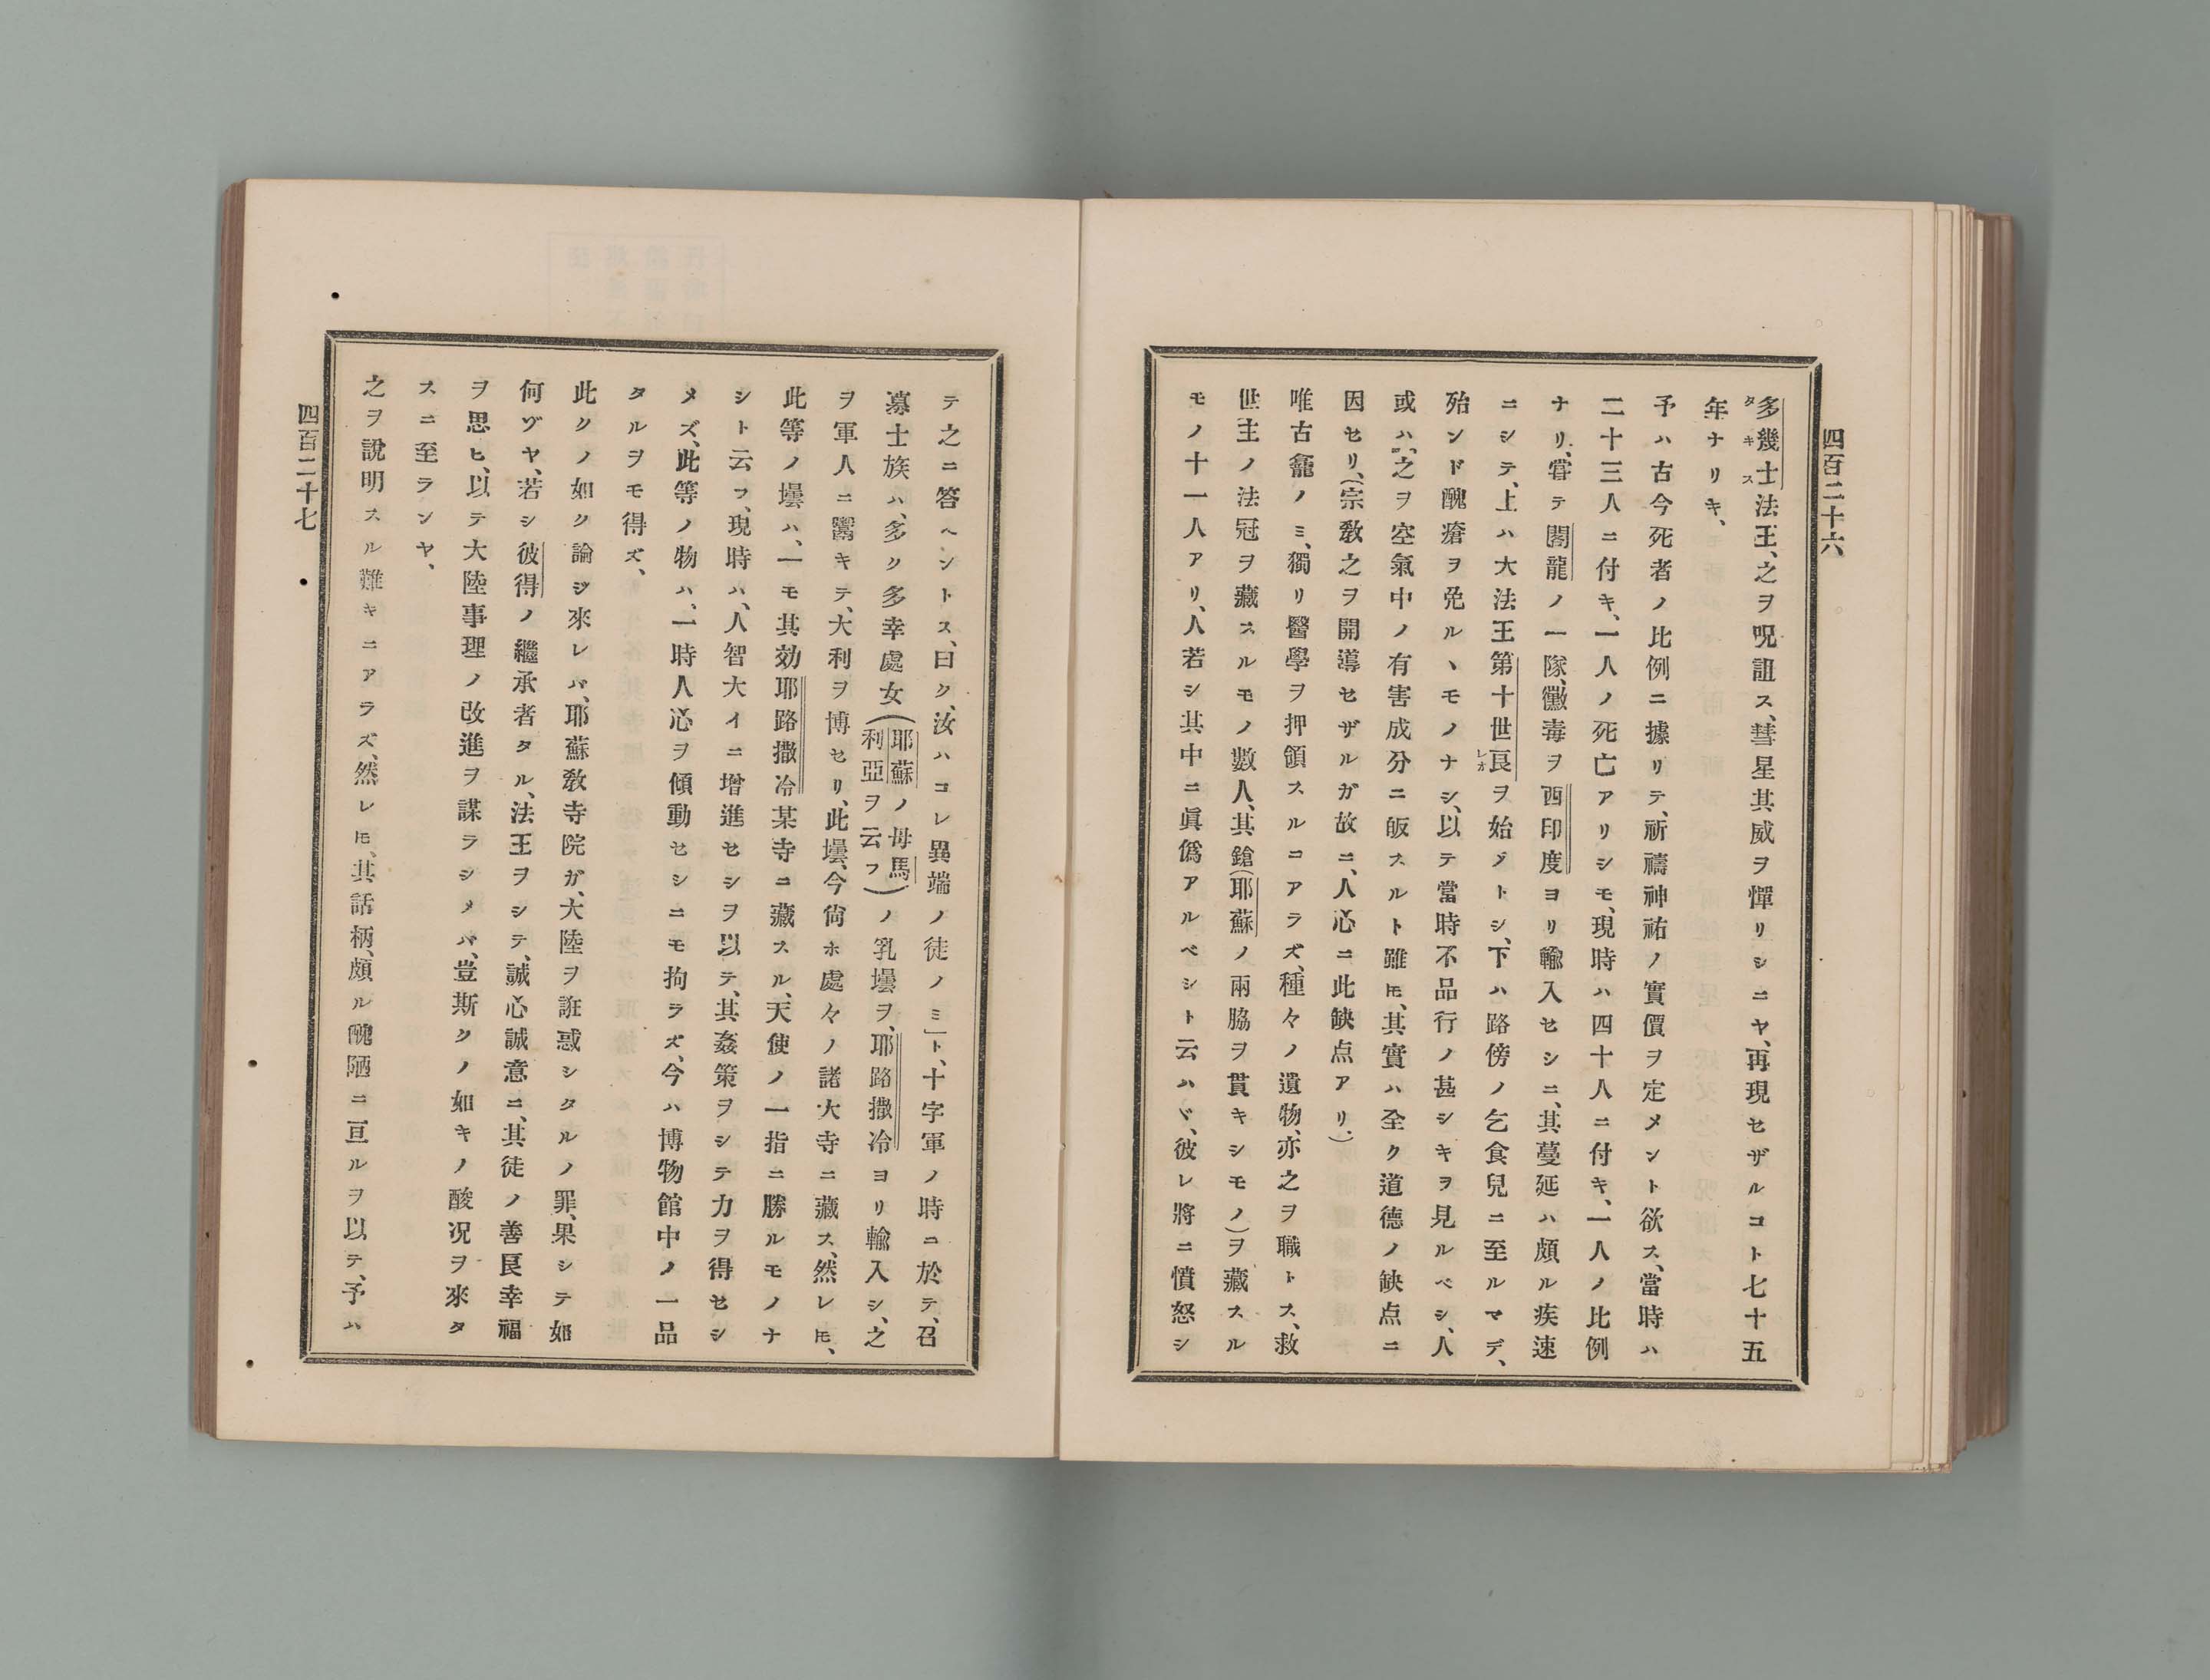 四百二十六
多幾士法王、之ヲ呪詛ス、彗星其威ヲ憚リシニヤ、再現セザルコト七十五
タキス
年ナリキ、
予ハ古今死者ノ比例ニ據リテ、祈禱神祐ノ實價ヲ定メント欲ス、當時ハ
二十三人ニ付キ、一人ノ死亡アリシモ、現時ハ四十人ニ付キ、一人ノ比例
ナリ、嘗テ閣龍ノ一隊、黴毒ヲ西印度ヨリ輸入セシニ、其蔓延ハ頗ル疾速
ニシテ、上ハ大法王第十世良ヲ始メトシ、下ハ路傍ノ乞食兒ニ至ルマデ、
レオ
殆ンド醜瘡ヲ免ルヽモノナシ、以テ當時不品行ノ甚シキヲ見ルベシ、人
或ハ、之ヲ空氣中ノ有害成分ニ皈スルト雖𪜈、其實ハ全ク道德ノ缺点ニ
因セリ、(宗敎之ヲ開導セザルガ故ニ、人心ニ此缺点アリ、)
唯古龕ノミ、獨リ醫學ヲ押領スルコアラズ、種々ノ遺物、亦之ヲ職トス、救
世主ノ法冠ヲ藏スルモノ數人、其鎗(耶蘇ノ兩脇ヲ貫キシモノ)ヲ藏スル
モノ十一人アリ、人若シ其中ニ眞僞アルベシト云ハヾ、彼レ將ニ憤怒シ
テ之ニ答ヘントス、曰ク、汝ハコレ異端ノ徒ノミ」ト、十字軍ノ時ニ於テ、召
募士族ハ、多ク多幸處女(耶蘇ノ母馬利亞ヲ云フ)ノ乳壜ヲ、耶路撒冷ヨリ輸入シ、之
ヲ軍人ニ鬻キテ、大利ヲ博セリ、此壜、今尙ホ處々ノ諸大寺ニ藏ス、然レ𪜈、
此等ノ壜ハ、一モ其効耶路撒冷某寺ニ藏スル、天使ノ一指ニ勝ルモノナ
シト云フ、現時ハ、人智大イニ增進セシヲ以テ、其姦策ヲシテ力ヲ得セシ
メズ、此等ノ物ハ、一時人心ヲ傾動セシニモ拘ラズ、今ハ博物館中ノ一品
タルヲモ得ズ、
此クノ如ク論ジ來レバ、耶蘇敎寺院ガ、大陸ヲ誑惑シタルノ罪、果シテ如
何ゾヤ、若シ彼得ノ繼承者タル、法王ヲシテ、誠心誠意ニ、其徒ノ善良幸福
ヲ思ヒ、以テ大陸事理ノ改進ヲ謀ラシメバ、豈斯クノ如キノ酸況ヲ來タ
スニ至ランヤ、
之ヲ說明スル難キニアラズ、然レ𪜈、其話柄、頗ル醜陋ニ亘ルヲ以テ、予ハ
四百二十七